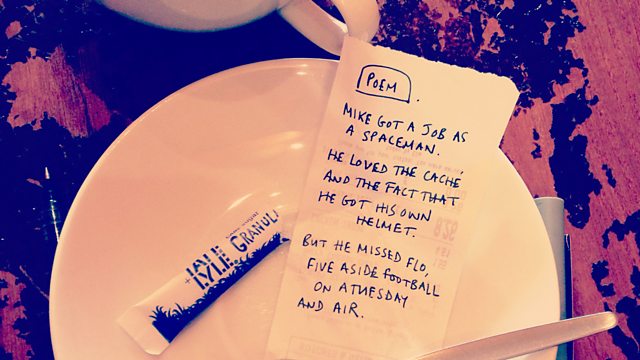 POEM.
MIKE GOT A JOB AS
A SPACEMAN.
HE LOVED THE CACHÉ
AND THE FACT THAT
HE GOT HIS OWN
HELMET.
BUT HE MISSED FLO,
FIVE ASIDE FOOTBALL
ON A TUESDAY
AND AIR.
TATE
LYLE